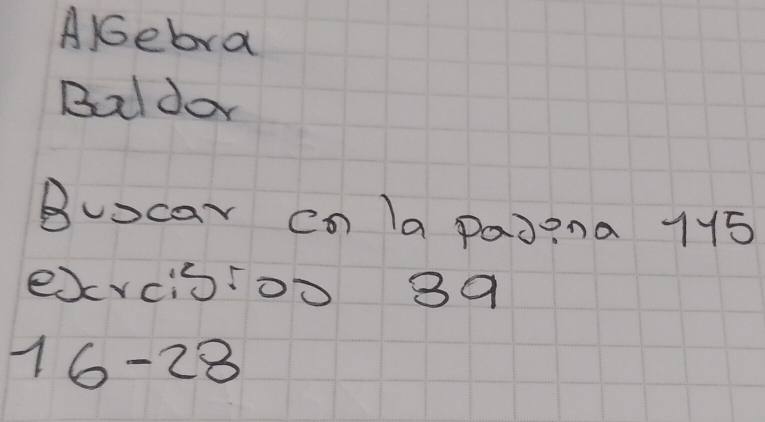 Algebra
Baldor
Buscar en la pagina 115
exrcisios 39
16-28